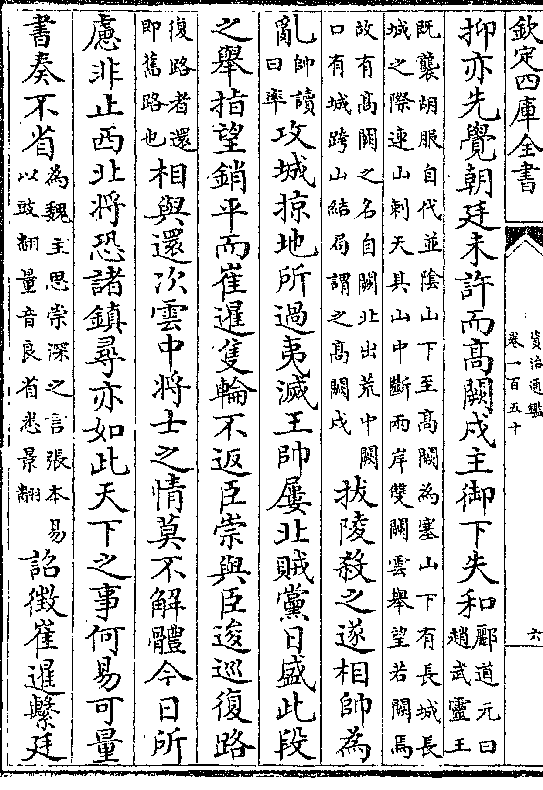 欽定四庫全書
資治通鑑
卷一百五十
六
抑亦先覺朝廷未許而高闕戍主御下失和酈道元曰趙武靈王
既襲胡服自代並陰山下至高闕為塞山下有長城長
城之際連山刺天其山中斷兩岸雙闕雲舉望若闕焉
故有高闕之名自闕北出荒中闕
口有城跨山結局謂之高闕戍拔陵殺之遂相帥為
亂帥讀曰率攻城掠地所過夷滅王師屢北賊黨日盛此段
之舉指望銷平而崔暹隻輪不返臣崇與臣逡巡復路
復路者還即舊路也相與還次雲中將士之情莫不解體今日所
慮非止西北將恐諸鎮尋亦如此天下之事何易可量
書奏不省為魏主思崇深之言張本易以豉翻量音良省悉景翻詔徴崔暹繫廷